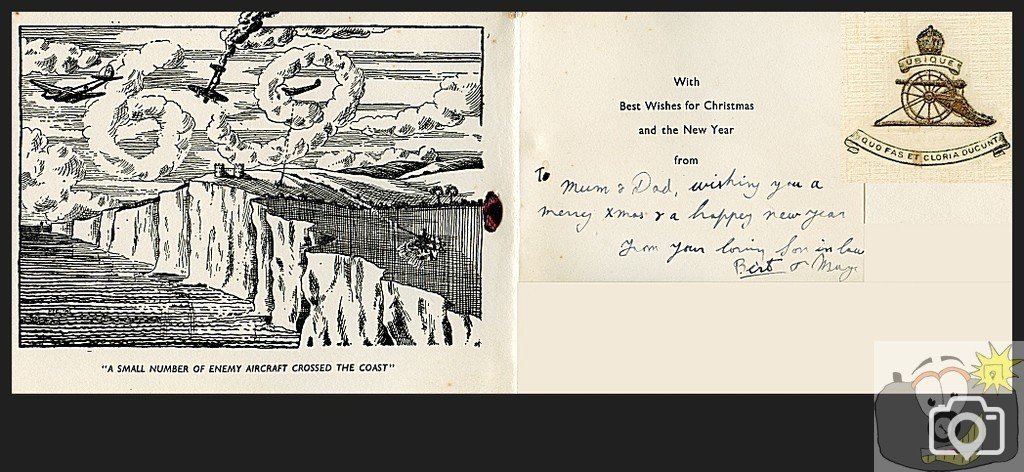 "A SMALL NUMBER OF ENEMY AIRCRAFT CROSSED THE COAST"
With
Best Wishes for Christmas
and the New Year
from
To Mum & Dad, wishing you a
merry xmas & a happy new year
from your loving Son in law
Bert & May
UBIQUE
QUO FAS ET GLORIA DUCUNT